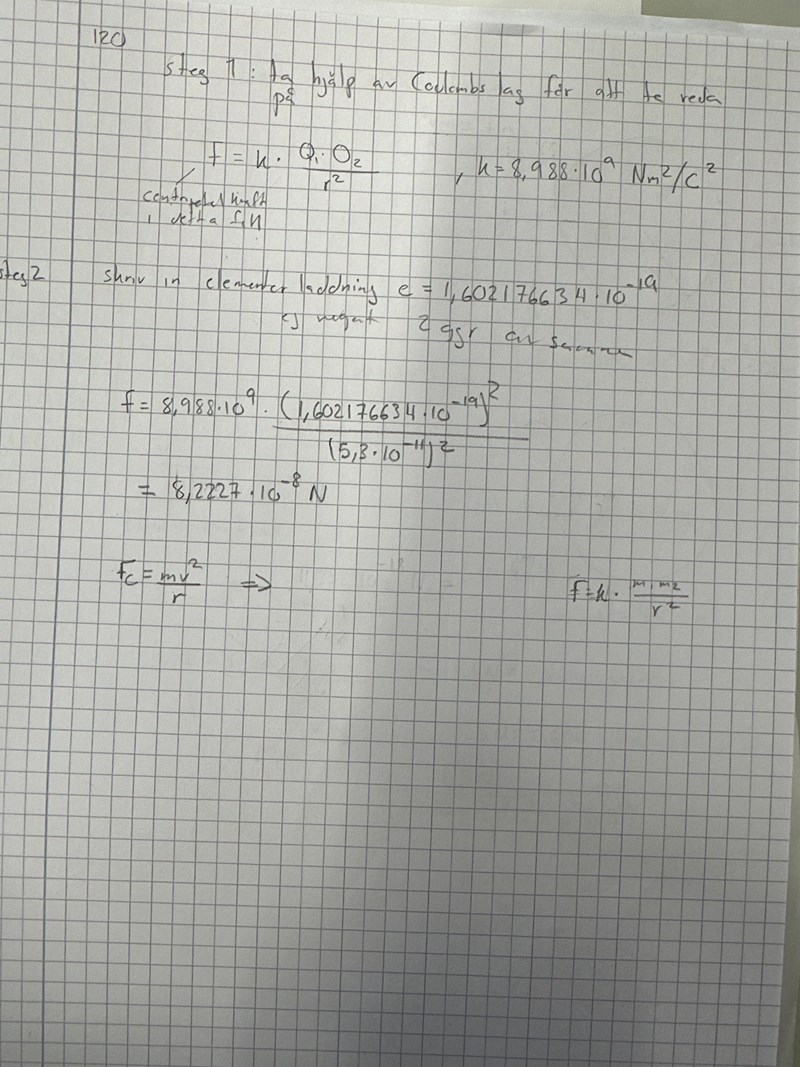 120
steg 1: ta hjälp av Coulombs lag för att ta reda
på
F = k · Q₁·Q₂ / r² , k = 8,988·10⁹ Nm²/C²
centripetal kraft
i detta fall
steg 2 skriv in elementar laddning e = 1,602176634·10⁻¹⁹
ej negat 2 ggr av samma
F = 8,988·10⁹ · (1,602176634·10⁻¹⁹)² / (5,3·10⁻¹¹)²
= 8,2227·10⁻⁸ N
Fc = mv² / r ⇒ F = k · m₁m₂ / r²